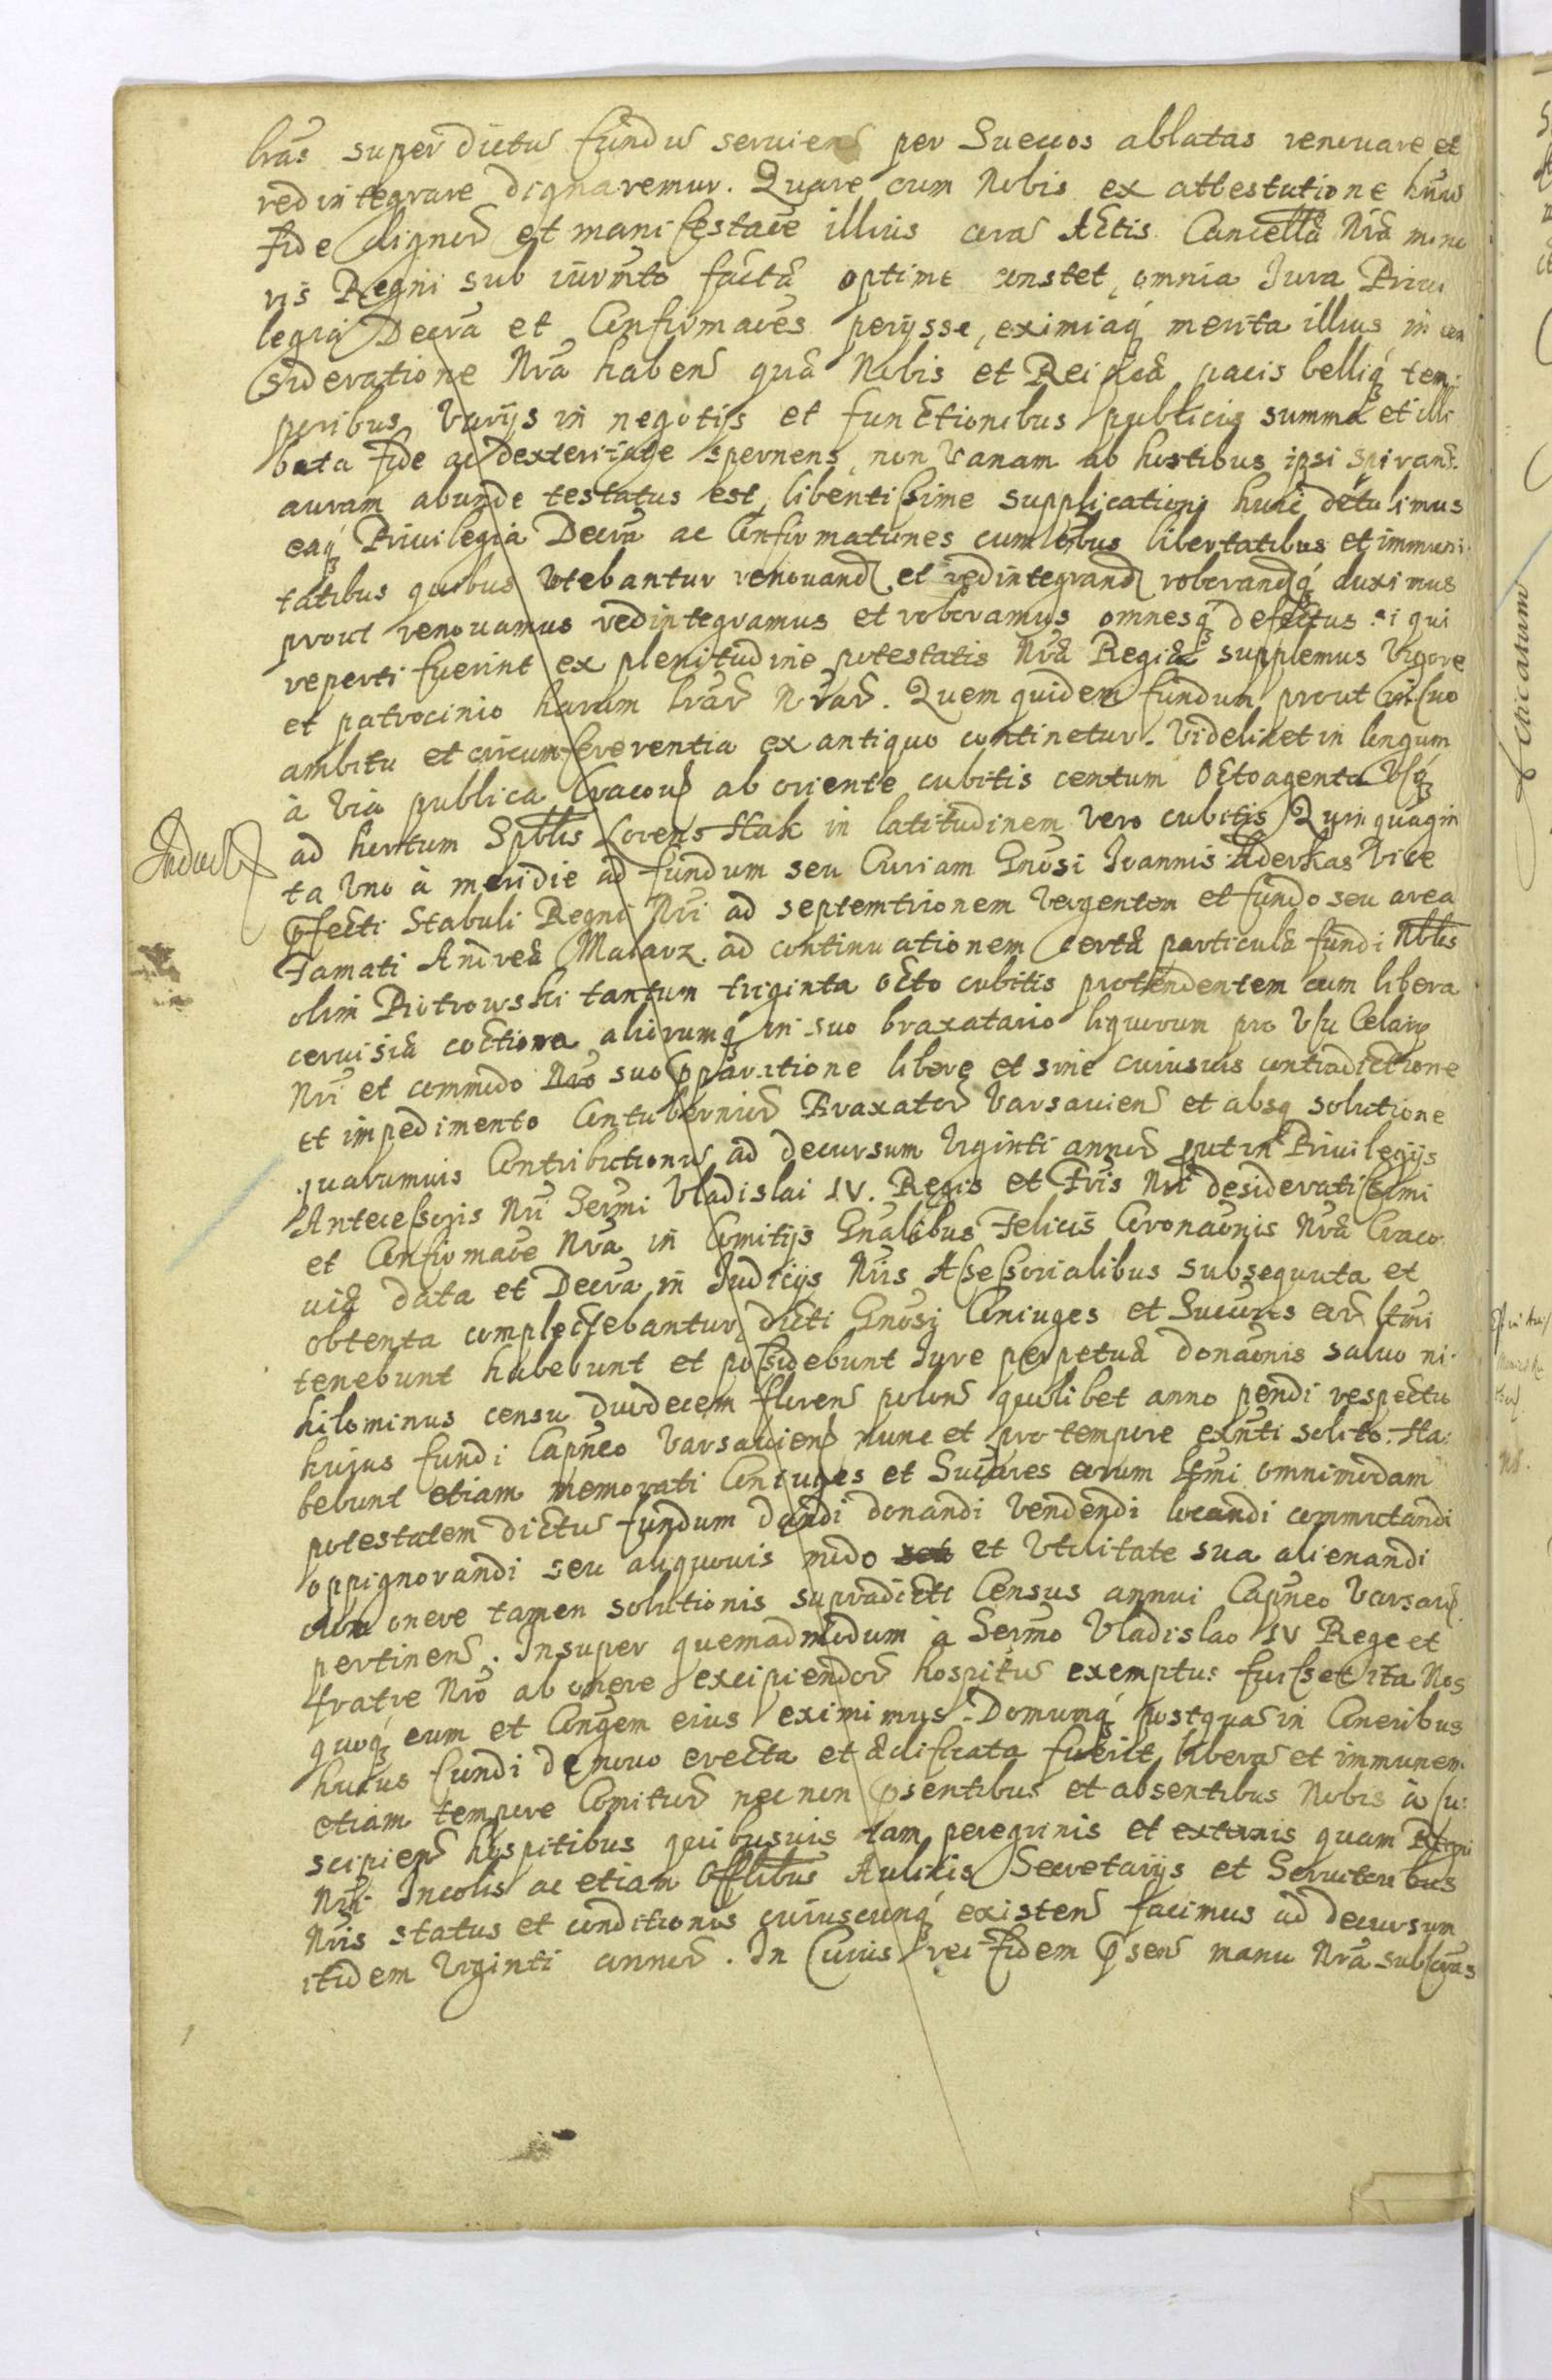 lras super dictu fundu seruien per Suecos ablatas renouare et
redintegrare dignaremur. Quare cum Nobis ex attestatione
fide dignor et manifestaõe illius cora Actis Cancella Nra mino
ris Regni sub iurmto facta optime constet, omnia Jura Priui
legia Decra et Confirmaões perijsse, eximiaq merita illius in con
sideratione Nra haben qua Nobis et Reipca pacis belliq tem
poribus varijs in negotijs et functionibus publicis summa et illi
bata fide ac dexteritate spernens, non vanam ab hostibus ipsi spirant
auram abunde testatus est, libentissime supplicationi huic detulimus
eaq Priuilegia Decra ac Confirmationes cum oibus libertatibus et immuni
tatibus quibus vtebantur renouand et redintegrand roborandq duximus
prout renouamus redintegramus et roboramus omnesq defectus si qui
reperti fuerint ex plenitudine potestatis Nra Regia supplemus Vigore
et patrocinio harum lrar Nrar. Quem quidem fundum prout in suo
ambitu et circumfereventia ex antiquo continetur. Videlicet in longum
à via publica Cracou ab oriente cubitis centum Octoagenta Vsq
ad hortum Spblis Lorens Hak in latitudinem vero cubitis Quinquagin
ta vno à meridie ad fundum seu Curiam Gnosi Joannis Aderkas Vice
pfecti Stabuli Regni Nri ad septemtrionem vergentem et fundo seu area
Famati Andrea Malarz ad continuationem certa particula fundi Nblis
olim Piotrowski tantum triginta octo cubitis protendentem cum libera
ceruisia coctione aliorumq in suo braxatorio liquorum pro Vsu Celarij
Nri et commodo Nro suo pparatione libere et sine cuiusuis contradictione
et impedimento Contubernior Braxator Varsauien et absq solutione
quarumuis Contributionu ad decursum Viginti annor put in Priuilegijs
Antecessoris Nri Sermi Vladislai IV. Regis et Fris Nri desideratissimi
et Confirmaõe Nra in Comitijs Gnalibus Felicis Coronaonis Nra Craco
uia data et Decra in Judicijs Nris Assessorialibus subsequuta et
obtenta complectebantur, dicti Gnosi Coniuges et Sucores eor ltmi
tenebunt habebunt et possidebunt Jure perpetua donaonis saluo ni
hilominus censu duodecem floren polon quolibet anno pendi respectu
hujus fundi Capneo Varsauien nunc et pro tempore exnti solito. Ha
bebunt etiam memorati Coniuges et Sucores eorum ltmi omnimodam
potestatem dictu fundum dandi donandi vendendi locandi commutandi
oppignorandi seu aliquouis modo et vtilitate sua alienandi
cum onere tamen solutionis supradicti Census annui Capneo Varsau
pertinen. Insuper quemadmodum à Sermo Vladislao IV Rege et
fratre Nro ab onere excipiendor hospitu exemptus fuisset ita Nos
quoq eum et Congem eius eximimus. Domumq postqua in Cineribus
huius fundi de nouo erecta et ædificata fuerit libera et immunem
etiam tempore Comitior nec non psentibus et absentibus Nobis à su
scipien hospitibus quibusuis tam peregrinis et externis quam Regni
Nri Incolis ac etiam Offlibus Aulicis Secretarijs et Seruitoribus
Nris status et conditionis cuiuscunq existen facimus ad decursum
itidem Viginti annor. In Cuius rei fidem psen manu Nra subscras